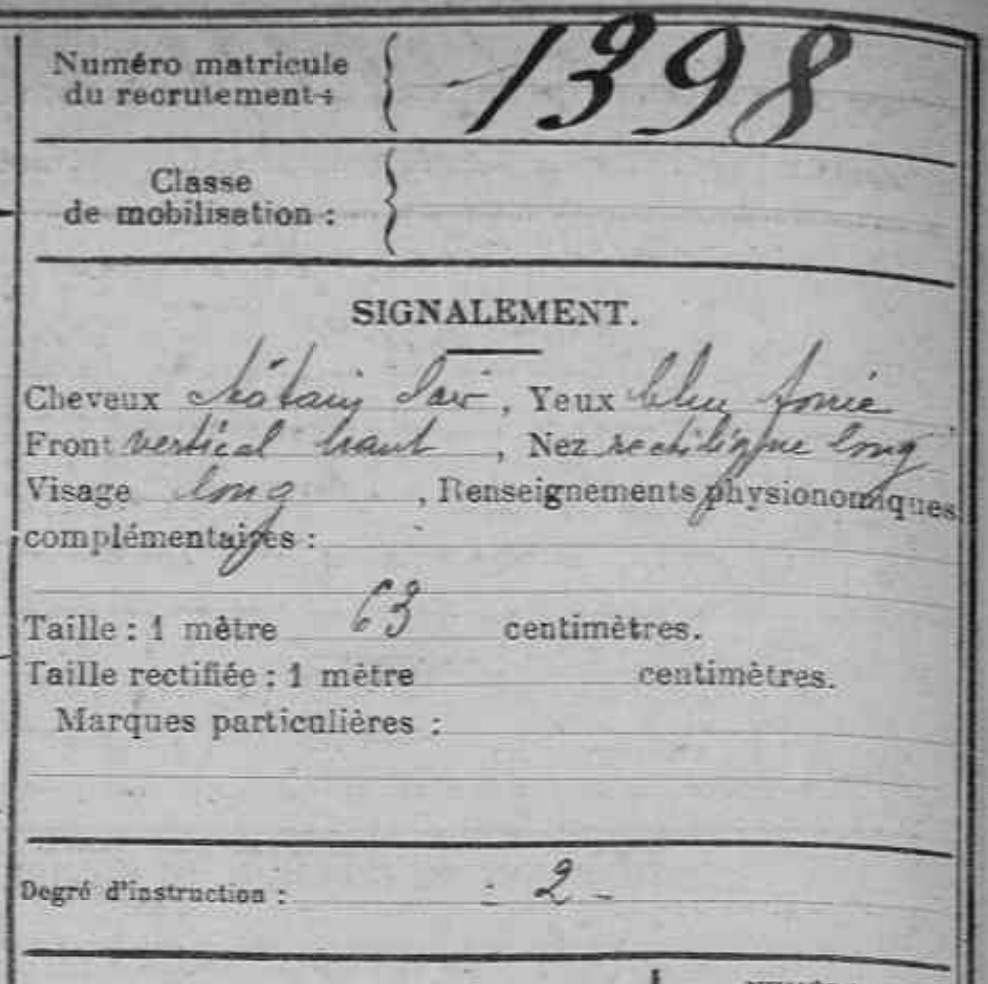 Numéro matricule
du recrutement :
1398
Classe
de mobilisation :
SIGNALEMENT.
Cheveux châtain clair, Yeux bleu foncé
Front vertical haut, Nez rectiligne long
Visage long, Renseignements physionomiques
complémentaires :
Taille : 1 mètre 63 centimètres.
Taille rectifiée : 1 mètre centimètres.
Marques particulières :
Degré d'instruction : : 2 -